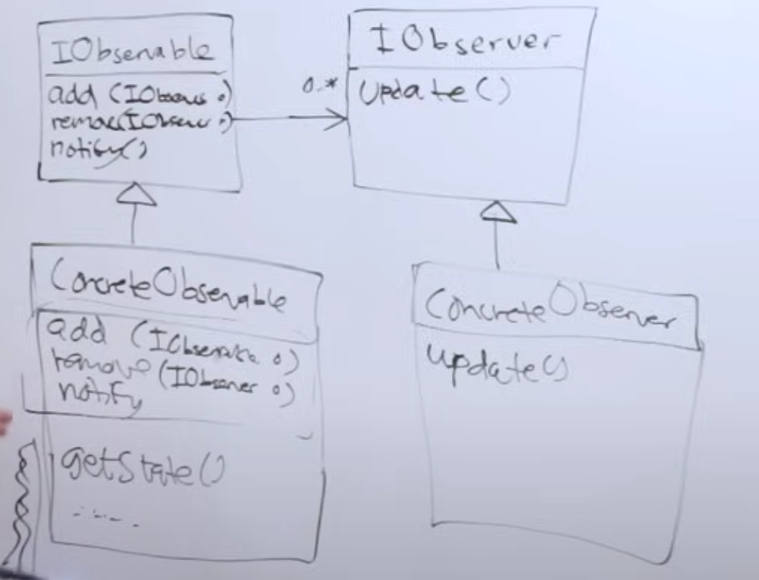 IObservable
add (IObserver o)
remove(IObserver o)
notify()
0..*
IObserver
update()
ConcreteObservable
add (IObserver o)
remove (IObserver o)
notify
getState()
.....
ConcreteObserver
update()